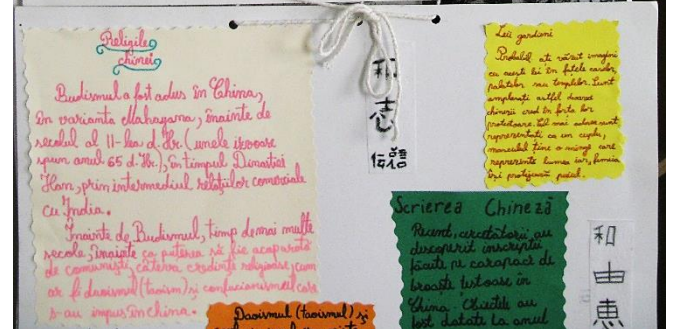 Religiile
chinei
Budismul a fost adus în China,
în varianta Mahayana, înainte de
secolul al II-lea d.Hr. (unele izvoare
spun anul 65 d.Hr.), în timpul Dinastiei
Han, prin intermediul relațiilor comerciale
cu India.
Înainte de Budismul, timp de mai multe
secole, înainte ca puterea să fie acaparată
de comuniști, câteva credințe religioase, cum
ar fi daoismul (taoism) și confucianismul care
s-au impus în China.
Daoismul (taoismul) și
和
志
信語
Leii gardieni
Probabil ați văzut imagini
cu acești lei în fețele caselor,
palatelor sau templelor. Sunt
amplasați astfel deoarece
chinezii cred în forța lor
protectoare. Cel mai adesea sunt
reprezentați ca un cuplu,
masculul ține o minge care
reprezintă lumea iar, femeia
își protejează puiul.
Scrierea Chineză
Recent, cercetătorii au
descoperit inscripții
făcute pe carapace de
broaște țestoase în
China. Obiectele au
fost datate la anul
和
由
恵